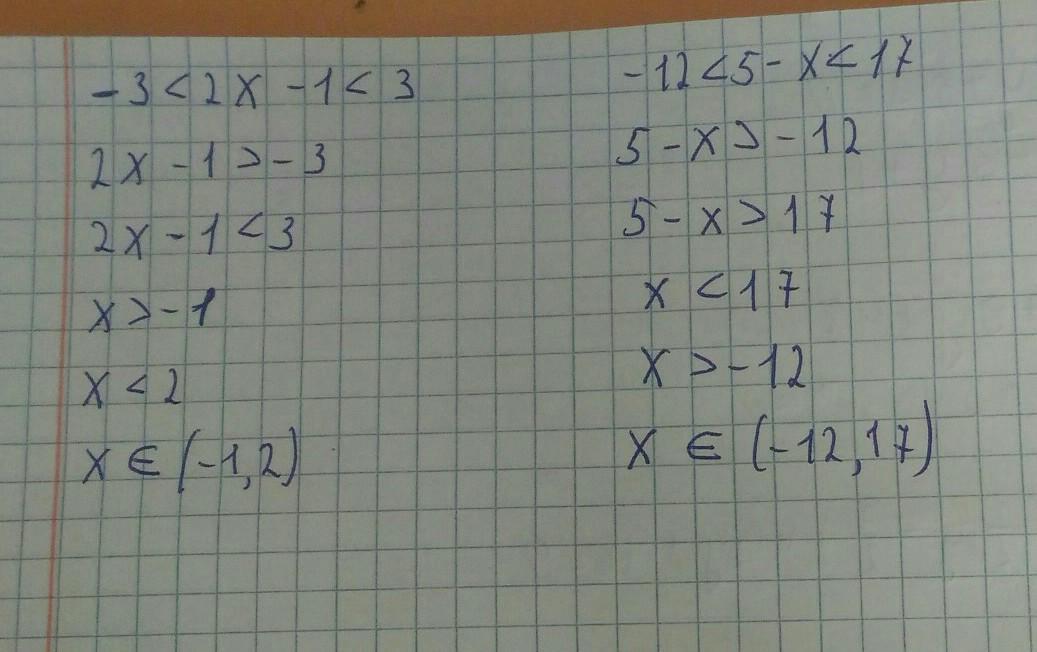 -3 < 2x - 1 < 3
2x - 1 > -3
2x - 1 < 3
x > -1
x < 2
x ∈ (-1,2)
-12 < 5 - x < 17
5 - x > -12
5 - x > 17
x < 17
x > -12
x ∈ (-12,17)